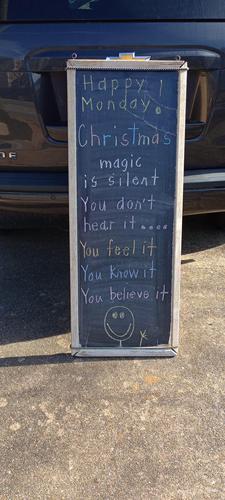 Happy
Monday.
Christmas
magic
is silent
You don't
hear it....
You feel it
You know it
You believe it